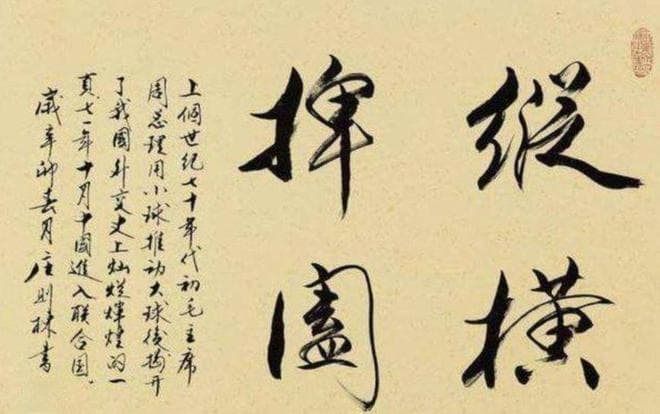 縱横
捭阖
上個世纪七十年代初毛主席
周总理用小球推动大球後揭开
了我國外交史上灿烂辉煌的一
頁七一年十月中國進入联合国.
歲辛卯春月庄则栋書